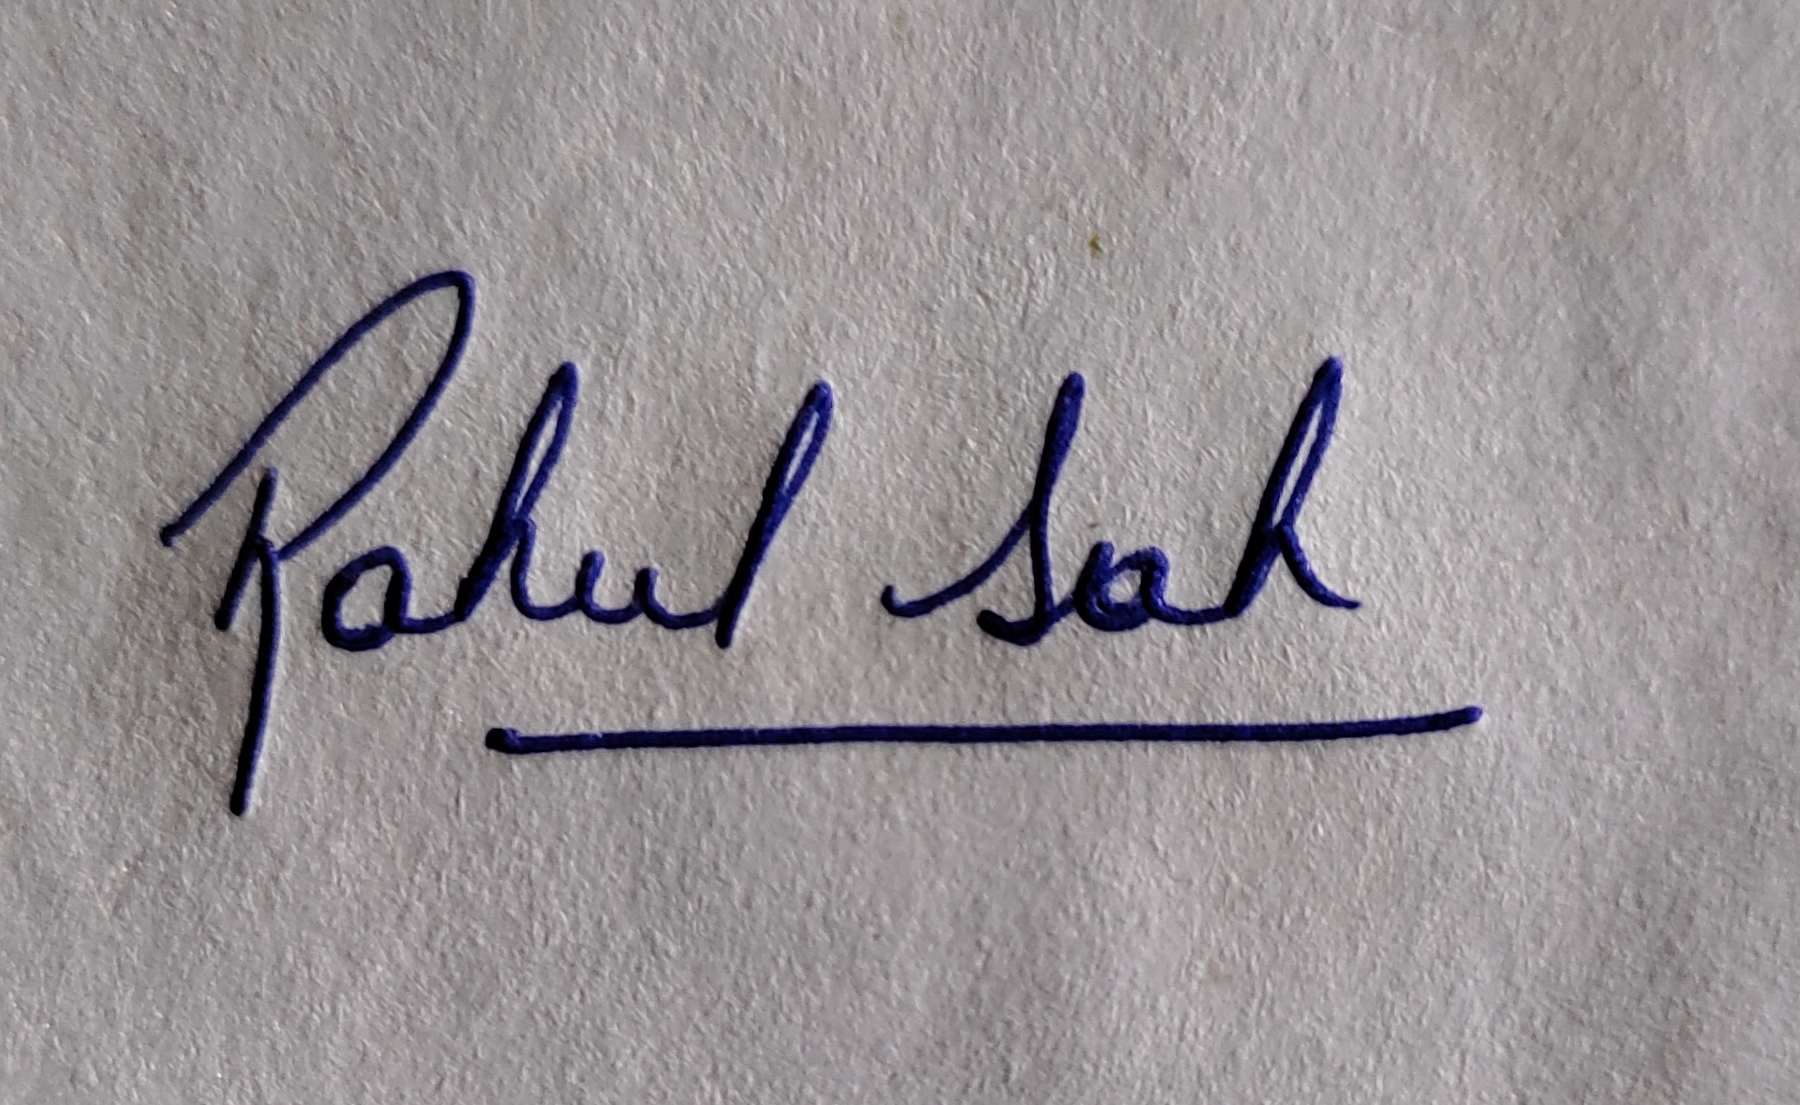 Rahul Sah